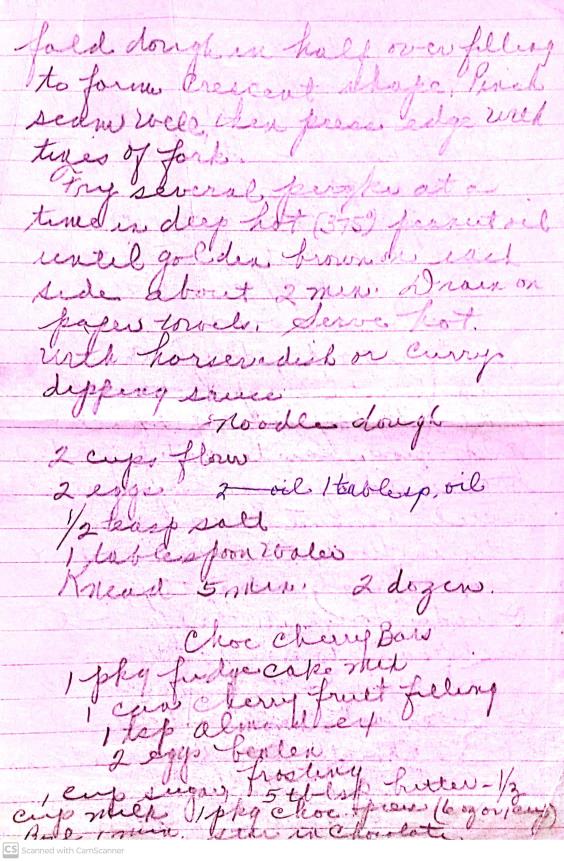 fold dough in half over filling
to form crescent shape. Pinch
seam well, then press edge with
tines of fork.
Fry several at a
time in deep hot (375) peanut oil
until golden brown on each
side about 2 min. Drain on
paper towels. Serve hot.
with horseradish or curry
dipping sauce
Noodle dough
2 cups flour
2 eggs 2 oil 1 tablesp. oil
1/2 teasp salt
1 tablespoon water
Knead 5 min. 2 dozen.
Choc Cherry Bars
1 pkg fudge cake mix
1 can cherry fruit filling
1 tsp almond ex
2 eggs beaten
frosting
1 cup sugar 5 tblsp butter - 1/2
cup milk 1 pkg choc (6 oz or 1 cup)
1 min. stir in chocolate.
CS Scanned with CamScanner